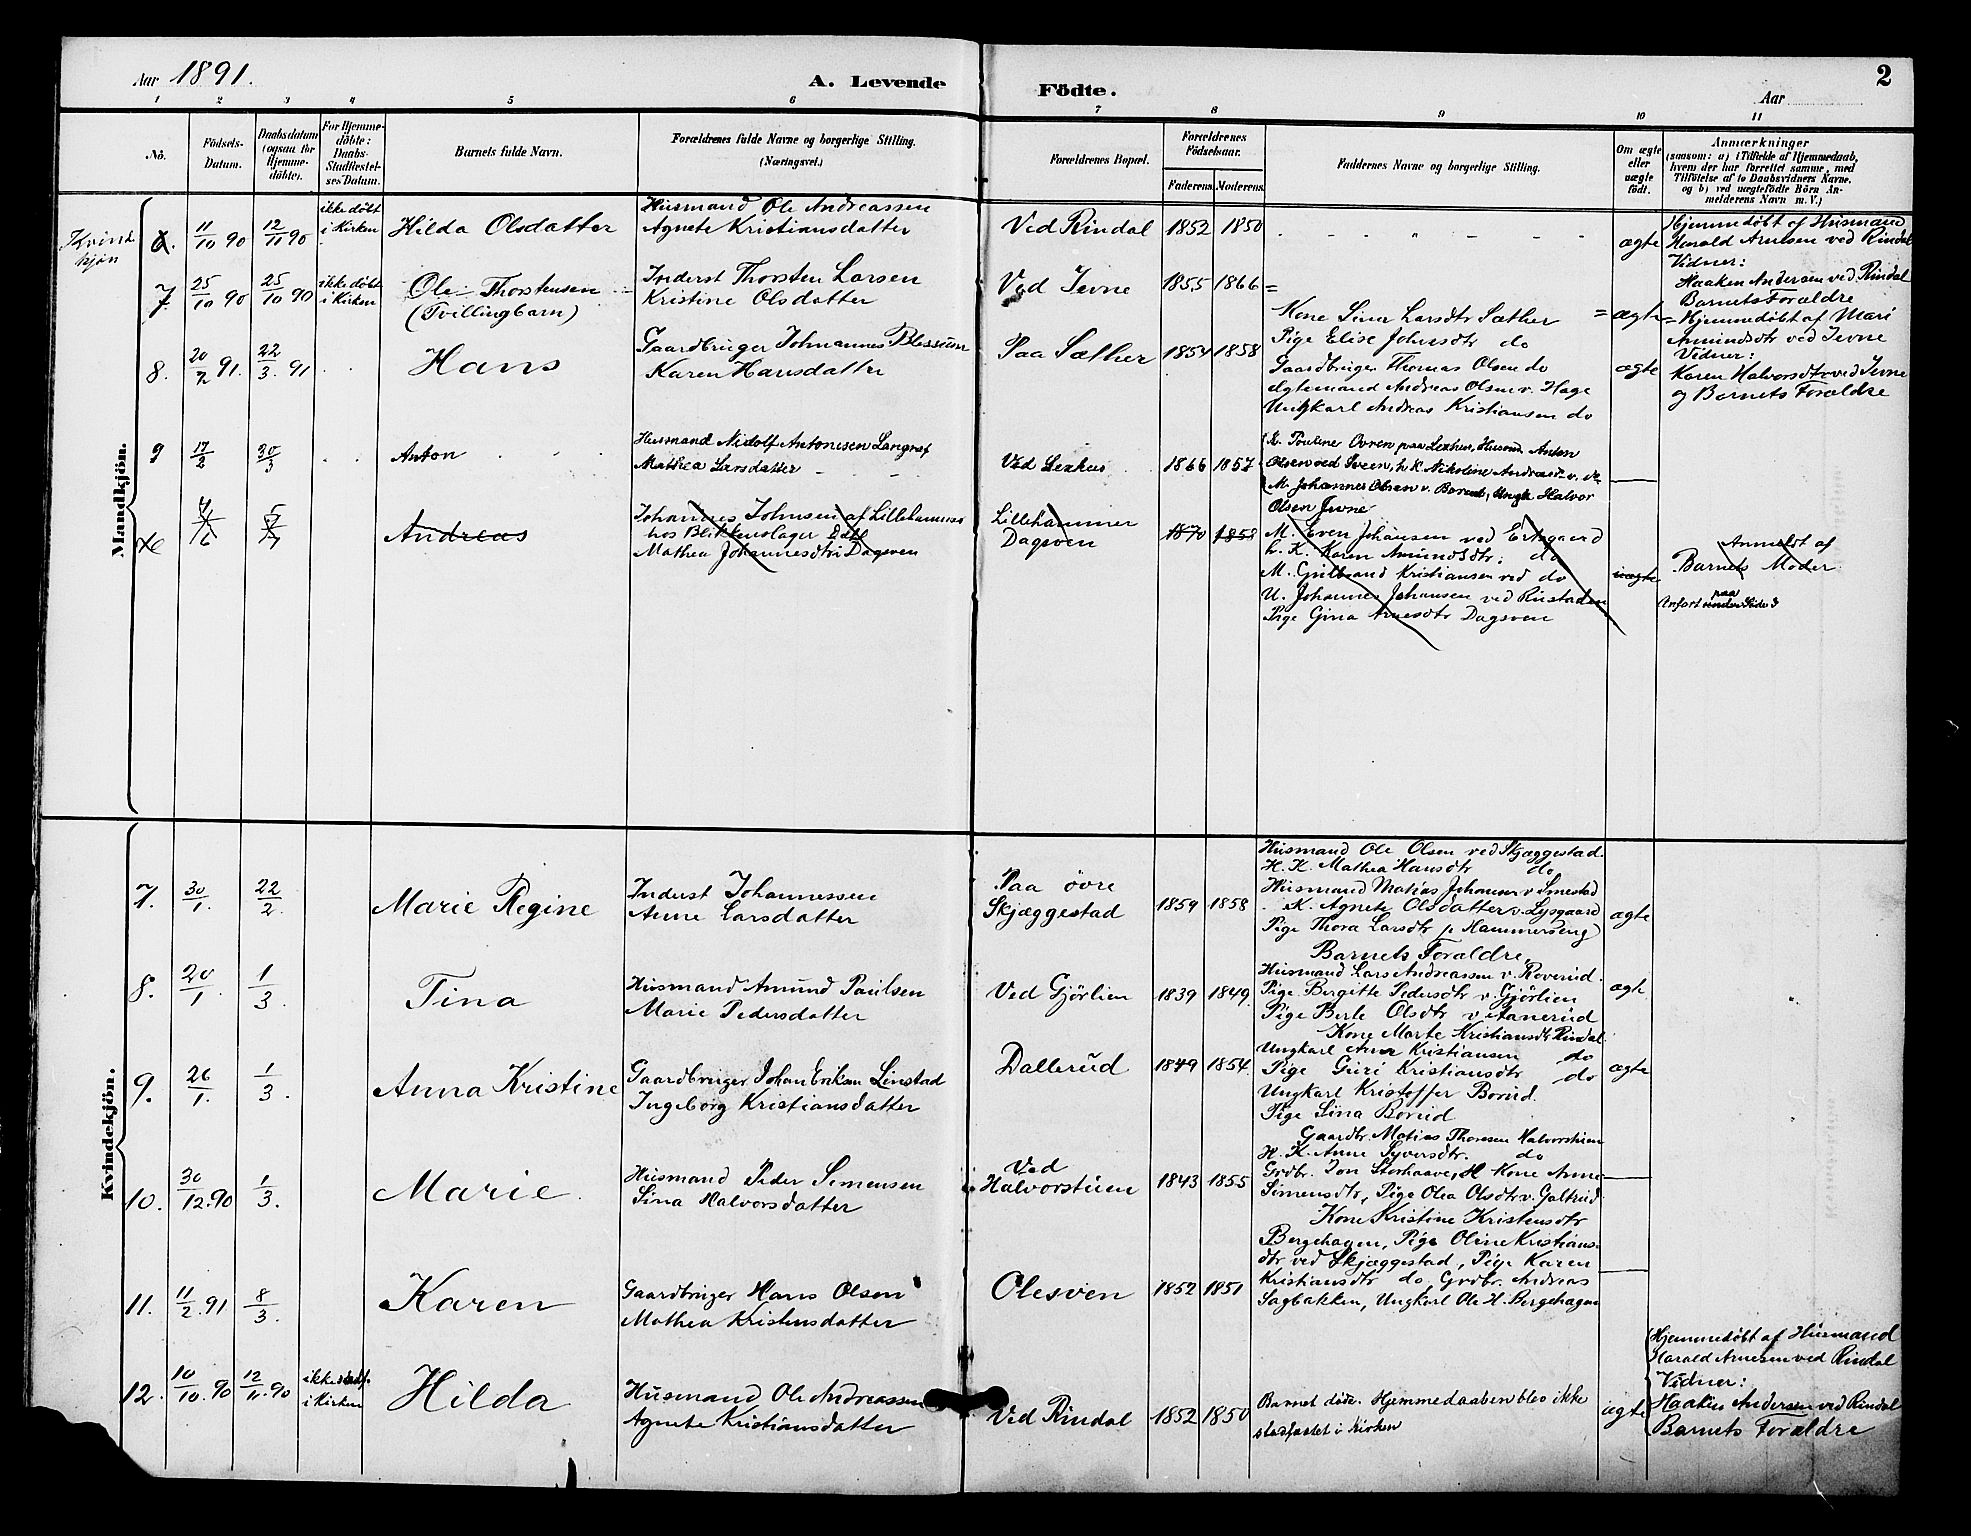 Aar 1891.
A. Levende Födte.
Aar
2
1 2 3 4 5 6 7 8 9 10 11
No.
Födsels-
Datum.
Daabsdatum
(ogsaa for
Hjemme-
döbte).
For Hjemme-
döbte:
Daabs-
Stadfæstel-
ses Datum.
Barnets fulde Navn.
Forældrenes fulde Navne og borgerlige Stilling.
(Næringsvei.)
Forældrenes Bopæl.
Forældrenes
Födselsaar.
Faderens. Moderens.
Faddernes Navne og borgerlige Stilling.
Om ægte
eller
uægte
födt.
Anmærkninger
(saasom: a) i Tilfælde af Hjemmedaab,
hvem der har forrettet samme, med
Tilföielse af to Daabsvidners Navne,
og b) ved uægtefödte Börn An-
melderens Navn m. V.)
Mandkjön.
Kvind
kjøn
6. 11/10 90 12/11 90
ikke døbt
i Kirken
Hilda Olsdatter
Husmand Ole Andreassen
Agnete Kristiansdatter
Ved Rindal 1852 1850
ægte
Hjemmedøbt af Husmand
Harald Arnesen ved Rindal
Vidner:
Haaken Andersen ved Rindal
Barnets Forældre
7. 25/10 90 25/10 90
ikke døbt
i Kirken
Ole Thorstensen
(Tvillingbarn)
Inderst Thorsten Larsen
Kristine Olsdatter
Ved Jevne 1855 1866 =
= ægte
= Hjemmedøbt af Mari
Amundsdtr ved Jevne
Vidner:
Karen Halvorsdtr ved Jevne
og Barnets Forældre
8. 20/2 91. 22/3. 91
Hans
Gaardbruger Johannes Plassum
Karen Hansdatter
Paa Sæther 1854 1858
Kone Sina Larsdtr Sæther
Pige Elise Johnsdtr do
Gaardbruger Thomas Olsen do
Ægtemand Andreas Olsen v. Hage
Ungkarl Andreas Kristiansen do
ægte
9 17/2 30/3
Anton
Husmand Nidolf Antonesen Langref
Mathea Larsdatter
Ved Lexhus 1866 1857
K. Pauline Ovren paa Lexhus, Husmd. Anton
Olsen ved Sveen, h. K. Nikoline Andreasd. v. do
M. Johannes Olsen v. Barent, Ungk. Halvor
Olsen Jevne
Andreas
Johannes Johnsen af Lillehammer
hos Blikkenslager Dahl
Mathea Johannesdtr i Dagsven
Lillehammer
Dagsven
1870 1858
M. Even Johansen ved Ertsgaard
h. K. Karen Amundsdtr. do
M. Gulbrand Kristiansen ved do
U. Johannes Johansen ved Rustaden
Pige Gina Arnesdtr Dagsven
uægte
Anmeldt af
Barnets Moder
Anført paa Side 3
Kvindekjön.
7. 30/1. 22/2.
Marie Regine
Inderst Johannessen
Anne Larsdatter
Paa øvre
Skjæggestad 1859 1858
Husmand Ole Olsen ved Skjæggestad.
H. K. Mathea Hansdtr do
Husmand Matias Johansen v. Smestad
K. Agnete Olsdatter v. Lysgaard
Pige Thora Larsdtr p Hammerseng
Barnets Forældre,
ægte
8. 20/1. 1/3.
Tina
Husmand Amund Paulsen
Marie Pedersdatter
Ved Gjörlien 1839 1849.
Husmand Lars Andreassen v. Roverud.
Pige Bergitte Pedersdtr v. Gjörlien
Pige Berte Olsdtr v. Aanerud
ægte
9. 26/1. 1/3.
Anna Kristine
Gaardbruger Johan Eriksen Linstad
Ingeborg Kristiansdatter
Dallerud 1849 1854.
Kone Marte Kristiansdtr Rindal.
Ungkarl Arne Kristiansen do
Pige Guri Kristiansdtr do
Ungkarl Kristoffer Borud.
Pige Lina Borud
ægte
10. 30/12. 90 1/3.
Marie.
Husmand Peder Simensen
Lina Halvorsdatter
Ved
Halvorstuen 1843 1855
Gaardbr. Matias Thoresen Halvorstuen
H. K. Anne Syversdtr. do
Grdbr. Jon Storhaave, H Kone Anne
Simensdtr, Pige Olea Olsdtr v. Galtrud
11. 11/2. 91 8/3.
Karen
Gaardbruger Hans Olsen
Mathea Kristensdatter
Olesven 1852 1851
Kone Kristine Kristensdtr
Bergehagen, Pige Oline Kristians-
dtr ved Skjæggestad, Pige Karen
Kristiansdtr do, Grdbr. Andreas
Sagbakken, Ungkarl Ole H. Bergehagen
12. 10/10. 90 12/11. 90
ikke stadf.
i Kirken
Hilda
Husmand Ole Andreassen
Agnete Kristiansdatter
Ved Rindal 1852 1850
Barnet døde. Hjemmedaaben blev ikke
stadfæstet i Kirken
ægte
Hjemmedøbt af Husmand
Harald Arnesen ved Rindal
Vidner:
Haaken Andersen ved Rindal
Barnets Forældre